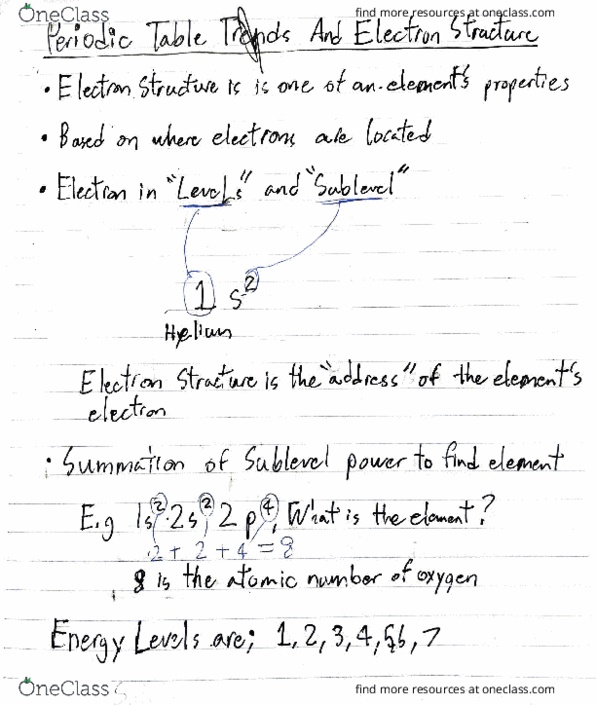 OneClass
find more resources at oneclass.com
Periodic Table Trends And Electron Structure
• Electron Structure is is one of an element's properties
• Based on where electrons are located
• Electron in "Levels" and "Sublevel"
1 s²
Helium
Electron Structure is the "address" of the element's
electron
• Summation of Sublevel power to find element
E.g 1s² 2s² 2p⁴, What is the element?
2 + 2 + 4 = 8
8 is the atomic number of oxygen
Energy Levels are; 1, 2, 3, 4, 5, 6, 7
OneClass
find more resources at oneclass.com